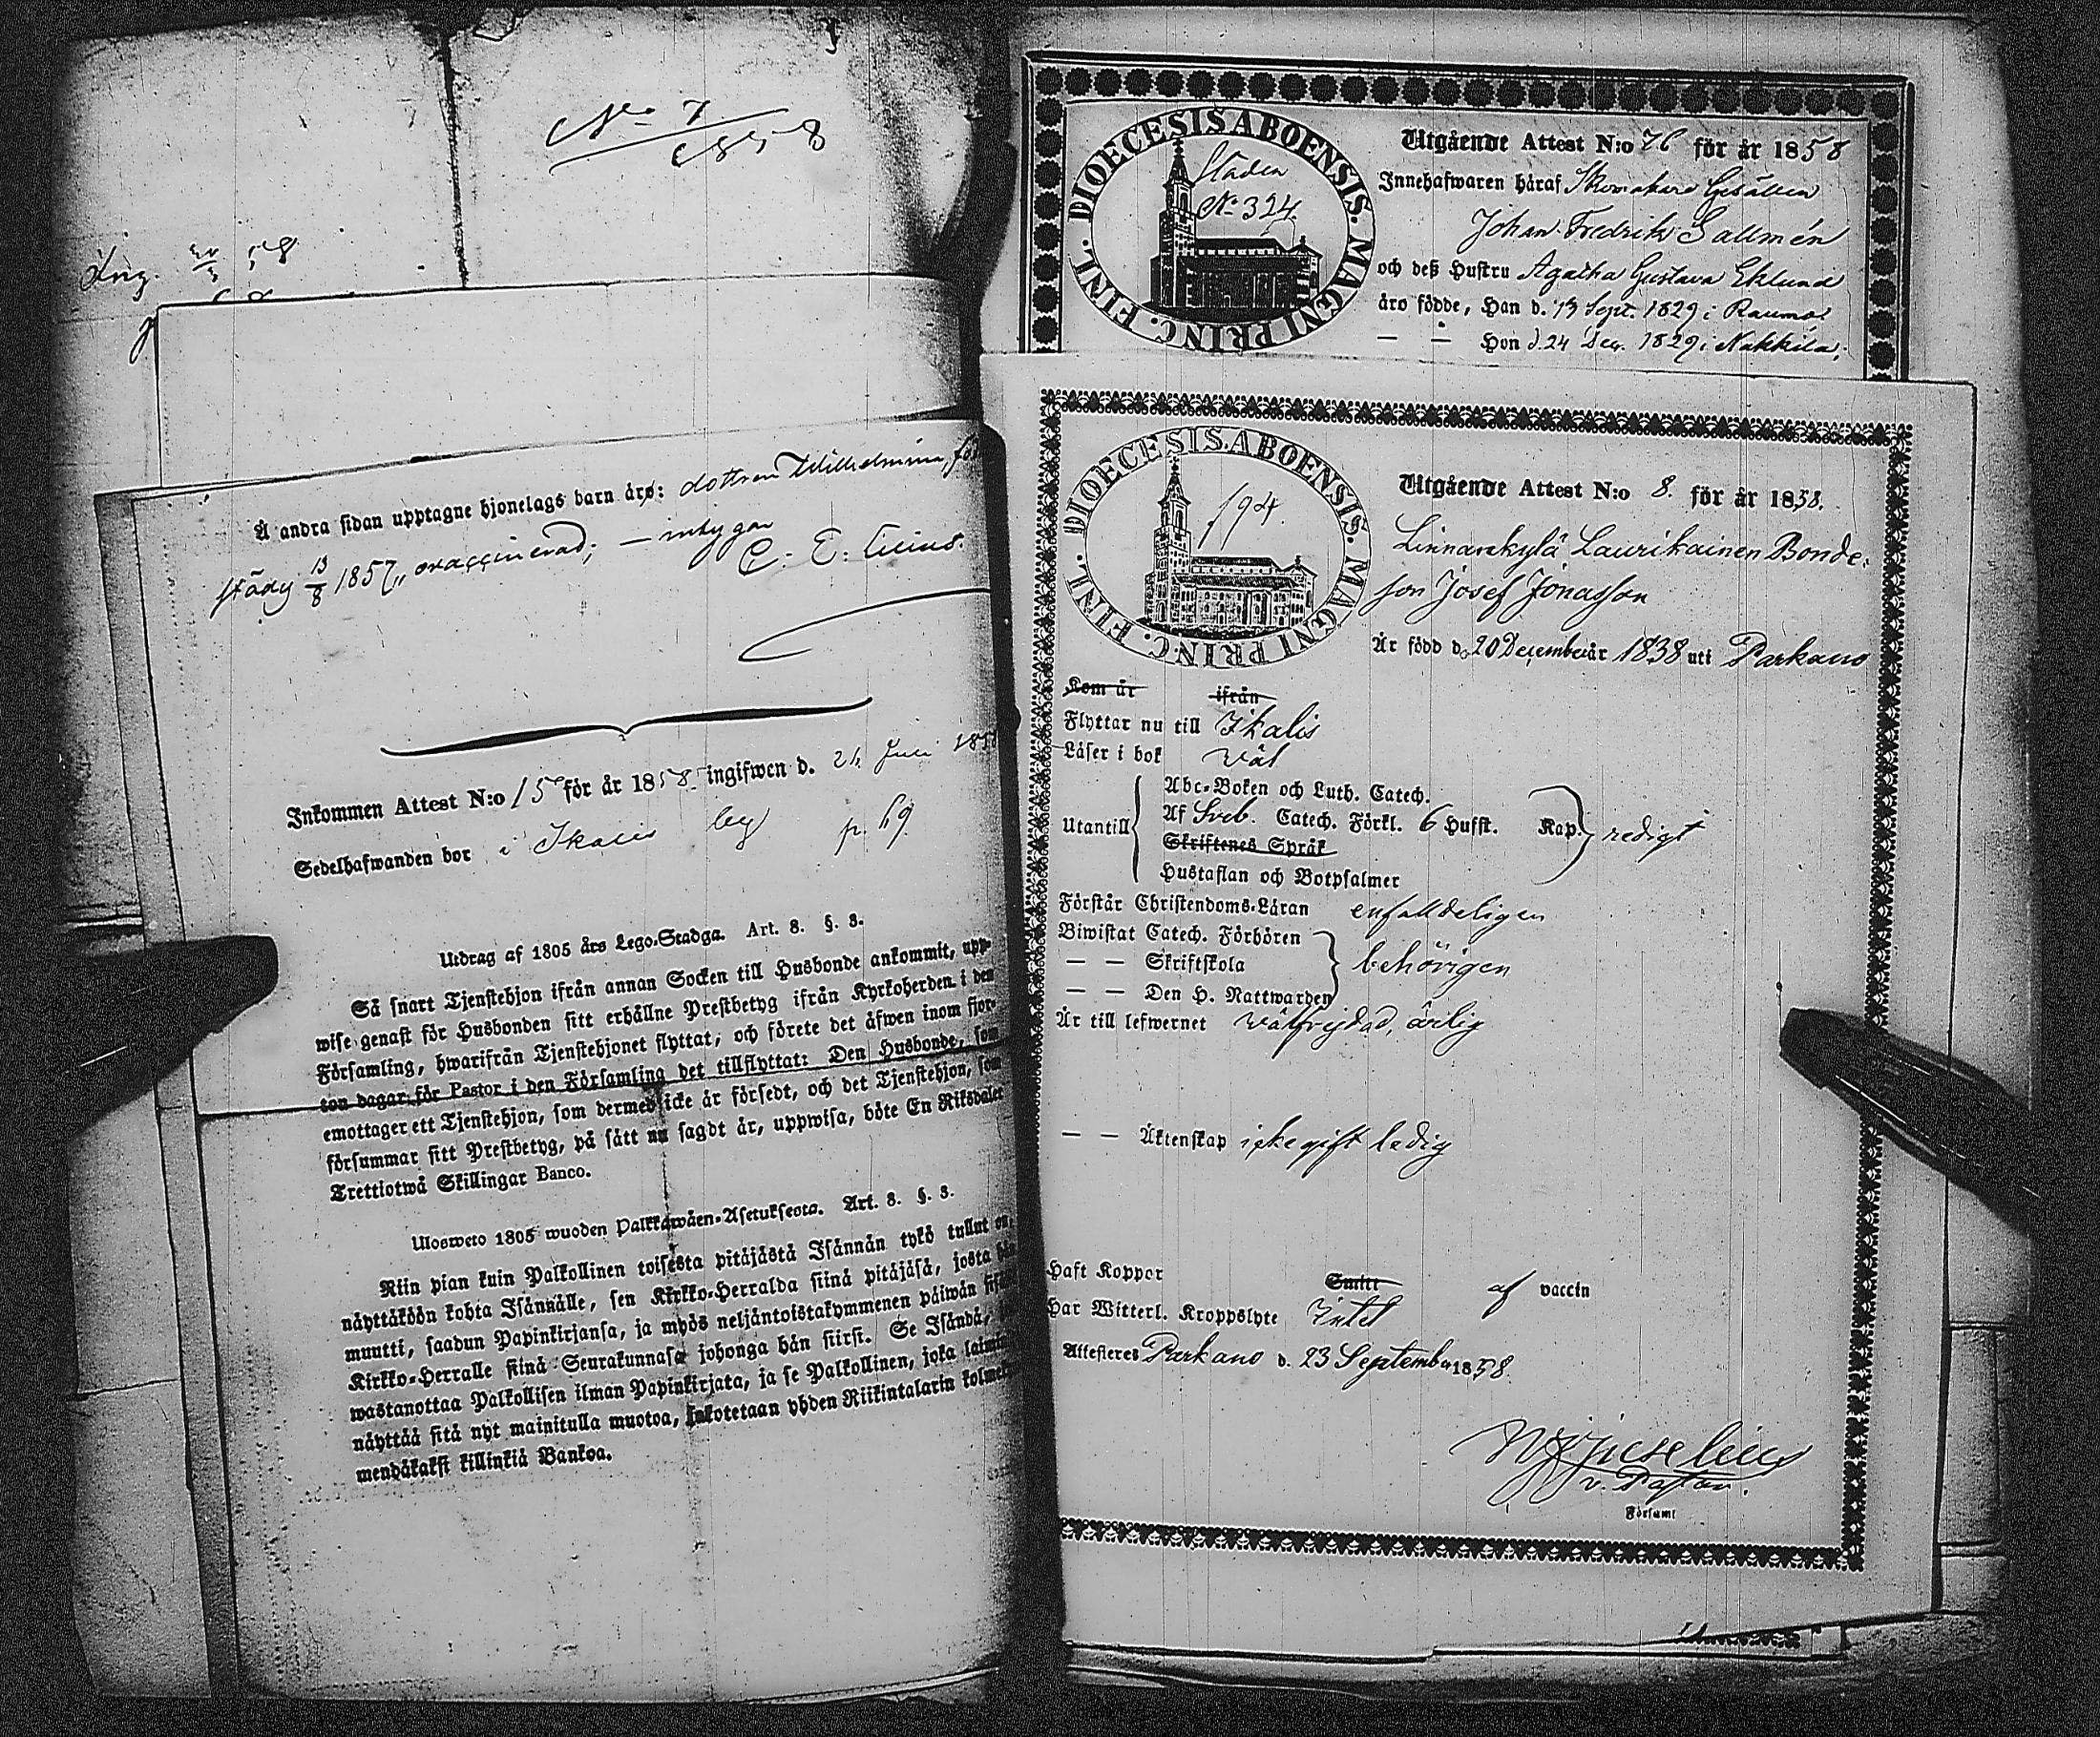 No 7
1858
Ing. 30/3 58
Å andra sidan upptagne hjonelags barn äro: dottren Wilhelmina, född
städz 13/8 1857, ovaccinerad; — intygar
C. E.
Inkommen Attest N:o 15 för år 1858 ingifwen d. 24 Juli 1858
Sedelhafwanden bor i Ikalis by p. 69
Utdrag af 1805 års Lego-Stadga. Art. 8. §. 3.
Så snart Tjenstehjon ifrån annan Socken till Husbonde ankommit, upp-
wise genast för Husbonden sitt erhållne Prestbetyg ifrån Kyrkoherden i den
Församling, hwarifrån Tjenstehjonet flyttat, och förete det äfwen inom fjor-
ton dagar för Pastor i den Församling det tillflyttat: Den Husbonde, som
emottager ett Tjenstehjon, som dermed icke är försedt, och det Tjenstehjon, som
försummar sitt Prestbetyg, på sätt nu sagdt är, uppwisa, böte En Riksdaler
Trettiotwå Skillingar Banco.
Ulosweto 1805 wuoden Palkkawäen-Asetuksesta. Art. 8. §. 3.
Niin pian kuin Palkollinen toisesta pitäjästä Isännän tykö tullut on,
näyttäköön kohta Isännälle, sen Kirkko-Herralda siinä pitäjäsä, josta hän
muutti, saadun Papinkirjansa, ja myös neljäntoistakymmenen päiwän sisällä
Kirkko-Herralle siinä Seurakunnasa johonga hän siirsi. Se Isändä,
wastanottaa Palkollisen ilman Papinkirjata, ja se Palkollinen, joka laimin
näyttää sitä nyt mainitulla muotoa, sakotetaan yhden Riikintalarin kolme
mendäkaksi killinkiä Bankoa.
DIOECESIS ABOENSIS. MAGNI PRINC. FINL.
Staden
No 324
Utgående Attest N:o 76 för år 1858
Innehafwaren häraf Skomakare Gesällen
Johan Fredrik Sallmén
och deß Hustru Agatha Gustava Eklund
äro födde, Han d. 13 Sept. 1829 i Raumo;
— — Hon d. 24 Dec. 1829 i Nakkila;
DIOECESIS ABOENSIS. MAGNI PRINC. FINL.
194.
Utgående Attest N:o 8. för år 1858.
Linnankylä Laurikainen Bonde-
son Josef Jonasson
Är född d. 20 December år 1838 uti Parkano
Kom år ifrån
Flyttar nu till Ikalis
Läser i bok wäl
Utantill
Abc-Boken och Luth. Catech.
Af Sveb. Catech. Förkl. 6 Hufst. Kap. redigt
Skriftenes Språk
Hustaflan och Botpsalmer
Förstår Christendoms-Läran enfalldeligen
Biwistat Catech. Förhören
— — Skriftskola behörigen
— — Den H. Nattwarden
Är till lefwernet wälfrejdad, ärlig
— — Äktenskap icke gift ledig
Haft Koppor Smitt af vaccin
Har Witterl. Kroppslyte Intet
Attesteres Parkano d. 23 September 1858.
v. Pastor.
Församl